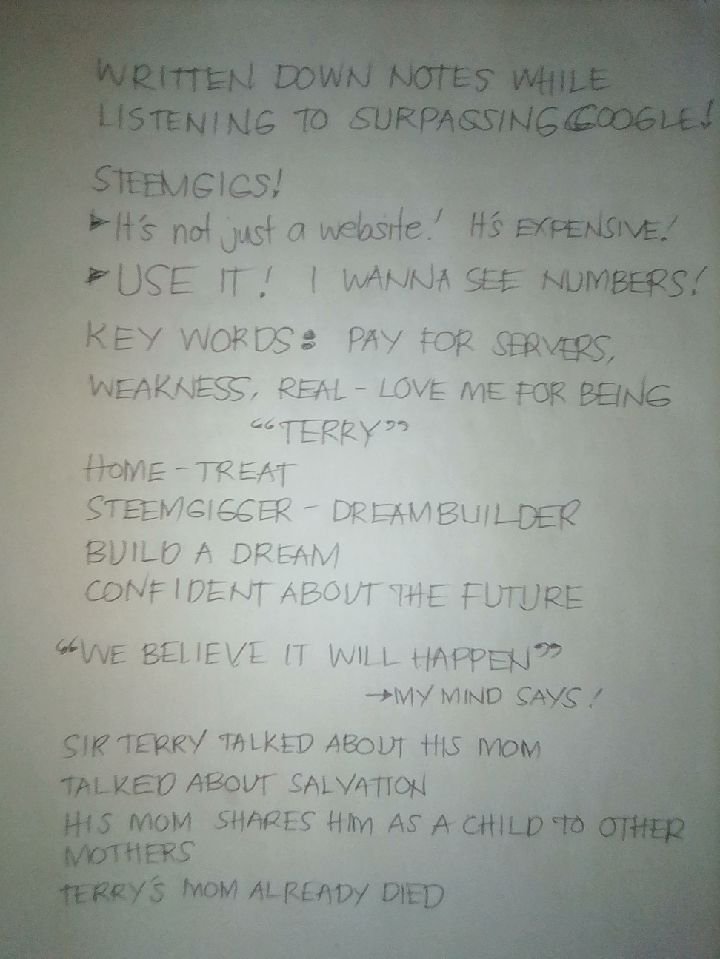 WRITTEN DOWN NOTES WHILE
LISTENING TO SURPASSING GOOGLE!
STEEMGIGS!
➤ It's not just a website! It's EXPENSIVE!
➤ USE IT! I WANNA SEE NUMBERS!
KEY WORDS: PAY FOR SERVERS,
WEAKNESS, REAL - LOVE ME FOR BEING
“TERRY”
HOME - TREAT
STEEMGIGGER - DREAMBUILDER
BUILD A DREAM
CONFIDENT ABOUT THE FUTURE
“WE BELIEVE IT WILL HAPPEN”
→MY MIND SAYS!
SIR TERRY TALKED ABOUT HIS MOM
TALKED ABOUT SALVATION
HIS MOM SHARES HIM AS A CHILD TO OTHER
MOTHERS
TERRY'S MOM ALREADY DIED